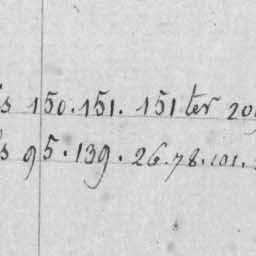 s 150. 151. 151 ter 20
s 95. 139. 26. 78. 101.